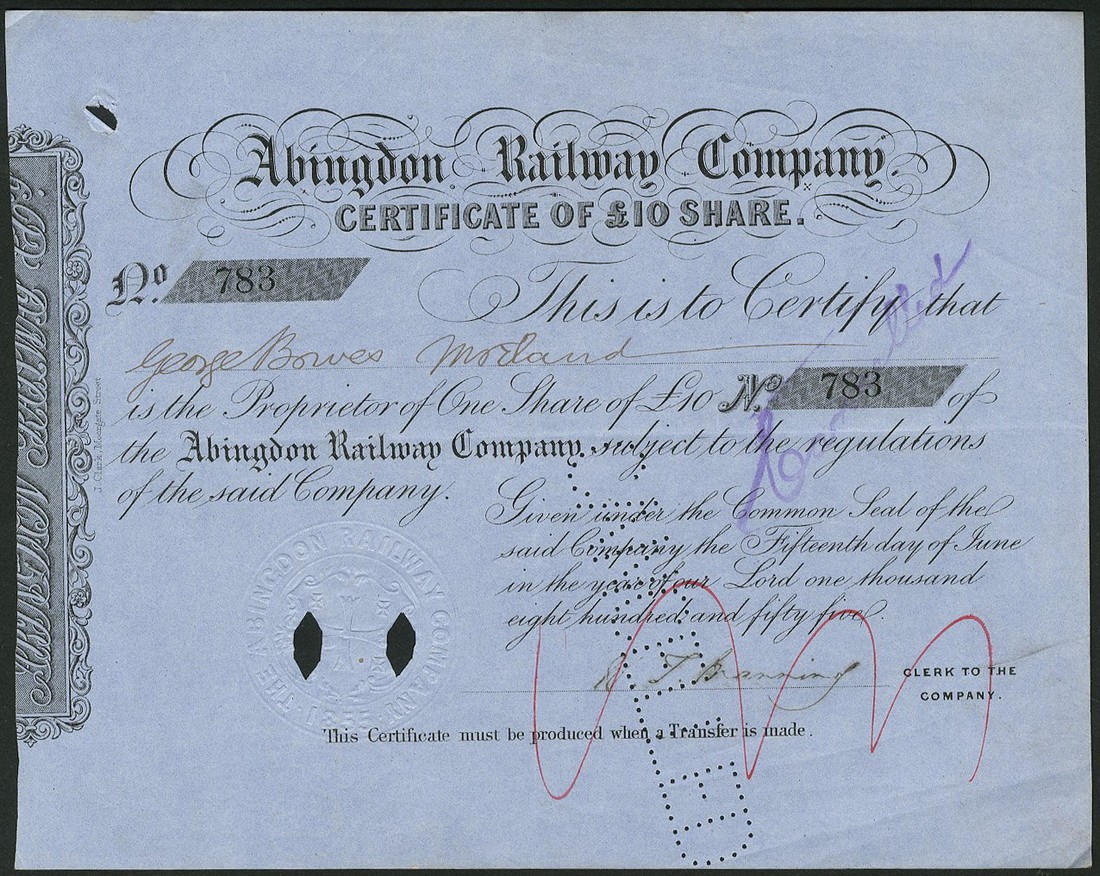 Abingdon Railway Company.
CERTIFICATE OF £10 SHARE.
No. 783
This is to Certify that
George Bowes Morland
is the Proprietor of One Share of £10 No. 783 of
the Abingdon Railway Company, subject to the regulations
of the said Company.
Given under the Common Seal of the
said Company the Fifteenth day of June
in the year of our Lord one thousand
eight hundred and fifty five.
CLERK TO THE
COMPANY.
This Certificate must be produced when a Transfer is made.
THE ABINGDON RAILWAY COMPANY
1855
Cancelled
ABINGDON RAILWAY CO.